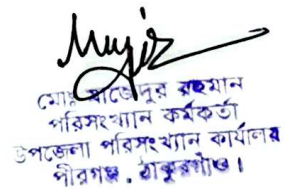 মোঃ সাজেদুর রহমান
পরিসংখ্যান কর্মকর্তা
উপজেলা পরিসংখ্যান কার্যালয়
পীরগঞ্জ, ঠাকুরগাঁও।